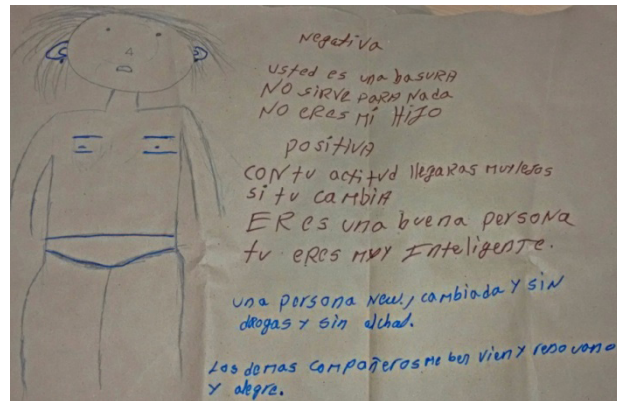 Negativa
usted es una basura
NO SIRVE PARA Nada
NO eres mi HIJO
positiva
CON tu actitud llegaras muy lejos
si tu cambia
ERes una buena persona
tu eres muy Inteligente.
una persona New, cambiada y sin
drogas y sin alchal.
Los demas compañeros me ben vien y
y alegre.